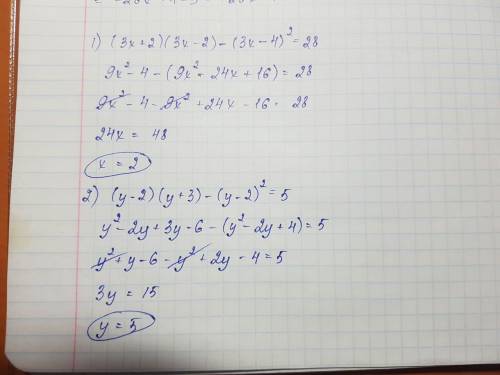 1) (3x+2)(3x-2)-(3x-4)²=28
9x²-4-(9x²-24x+16)=28
9x²-4-9x²+24x-16=28
24x=48
x=2
2) (y-2)(y+3)-(y-2)²=5
y²-2y+3y-6-(y²-2y+4)=5
y²+y-6-y²+2y-4=5
3y=15
y=5